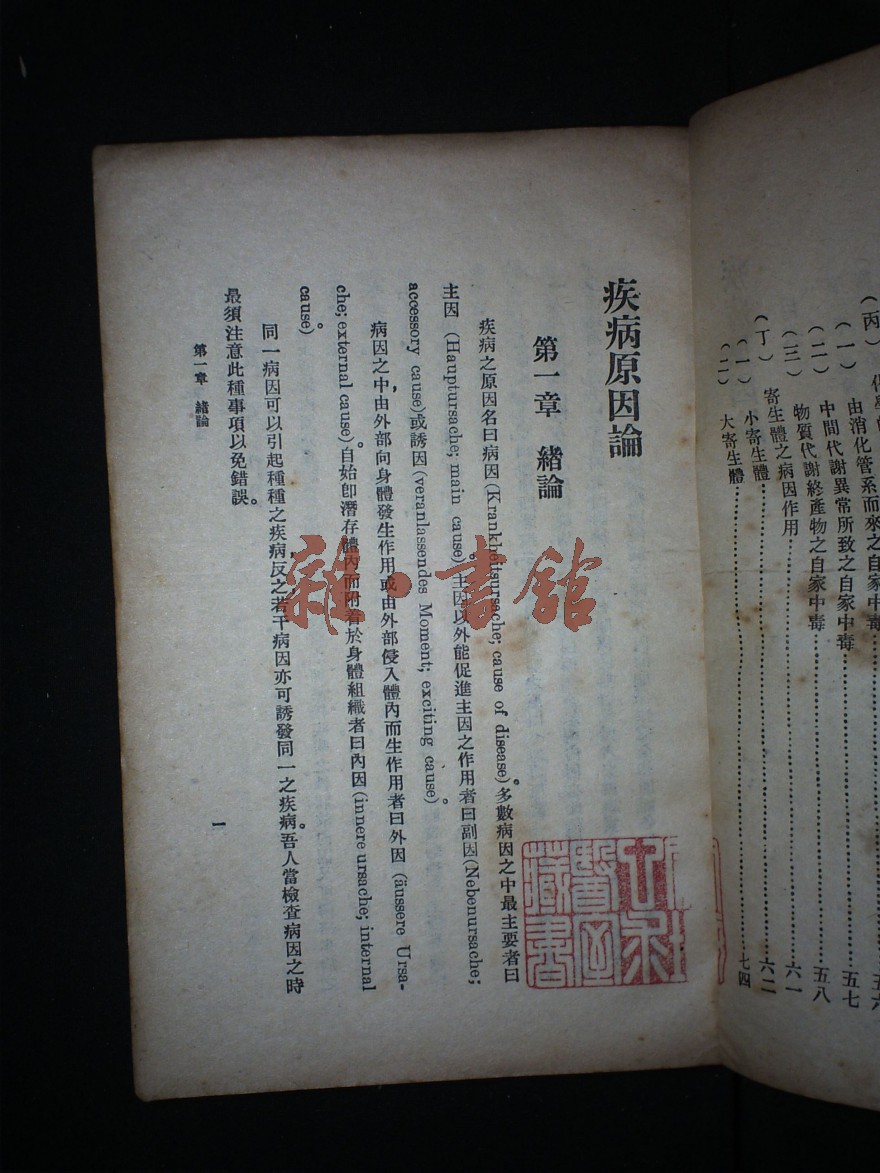 由消化管系而來之自家中毒
(一) 中間代謝異常所致之自家中毒……五七
(二) 物質代謝終產物之自家中毒……五八
(三) 寄生體之病因作用……六一
(丁)
(一) 小寄生體……六二
(二) 大寄生體……七四
疾病原因論
第一章 緒論
疾病之原因名曰病因(Krankheitsursache; cause of disease)。多數病因之中最主要者曰
主因 (Hauptursache; main cause)。主因以外能促進主因之作用者曰副因(Nebenursache;
accessory cause)或誘因(veranlassendes Moment; exciting cause)。
病因之中,由外部向身體發生作用或由外部侵入體內而生作用者曰外因 (äussere Ursa-
che; external cause)。自始卽潛存體內而附着於身體組織者曰內因(innere ursache; internal
cause)。
同一病因可以引起種種之疾病,反之若干病因亦可誘發同一之疾病。吾人當檢查病因之時
最須注意此種事項以免錯誤。
第一章 緒論
一
雜·書館
醫室
藏書